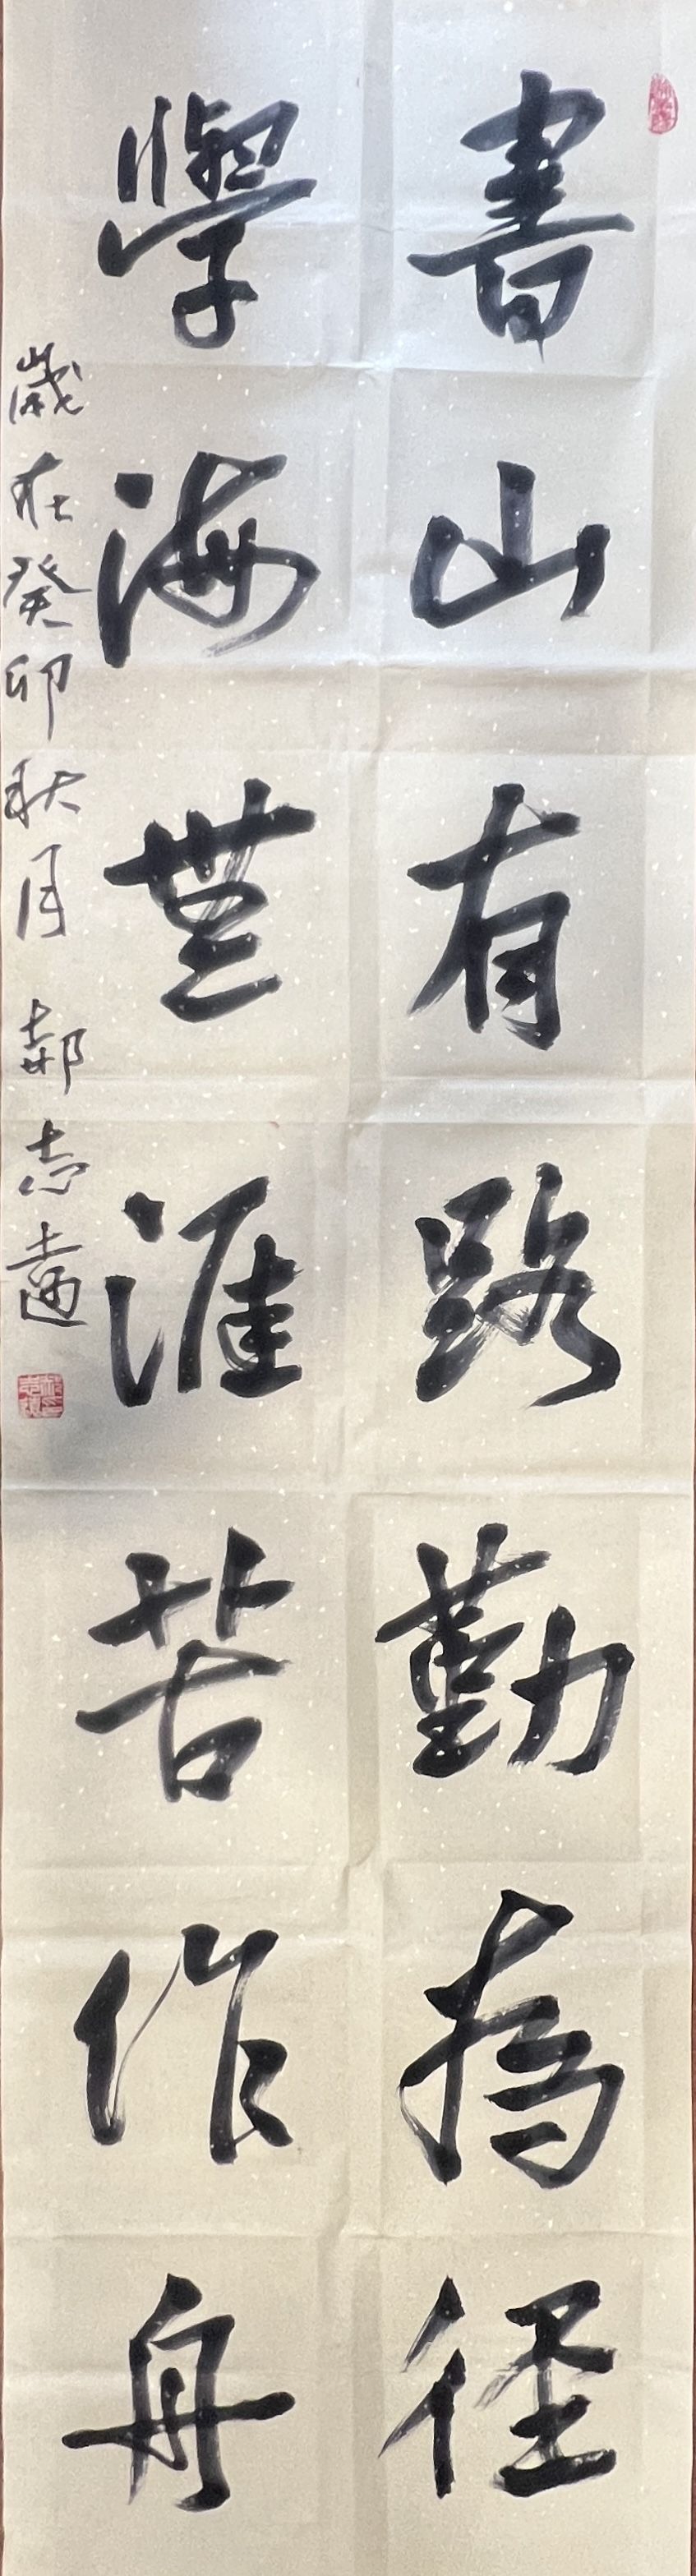 書山有路勤為徑
學海無涯苦作舟
歲在癸卯秋月 郝志邁